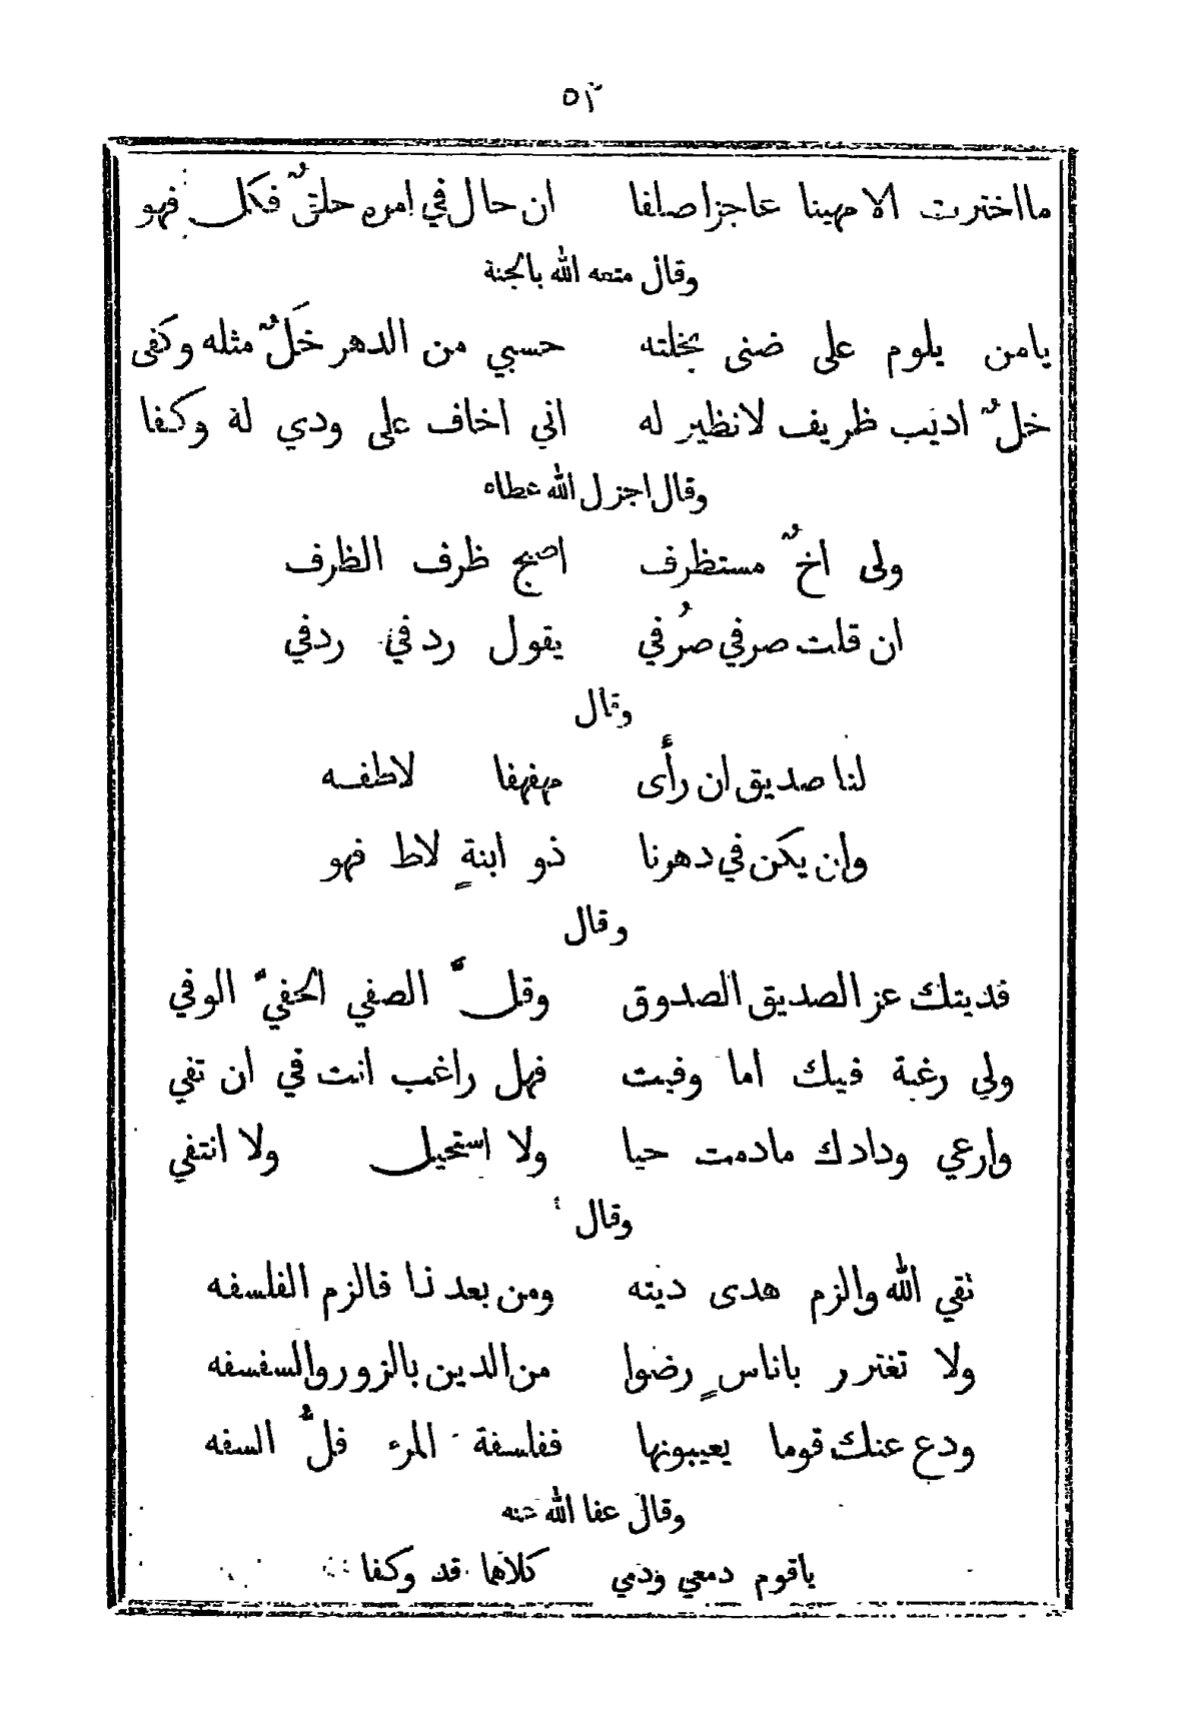 ٥٢
مااخترت الا مهينا عاجزا صلفا ان حال في امره حلقٌ فكل فهو
وقال متعه الله بالجنة
يامن يلوم على ضنى بخلته حسبي من الدهر خَلٌ مثله وكفى
خلٌ اديب ظريف لانظير له اني اخاف على ودي له وكفا
وقال اجزل الله عطاه
ولى اخٌ مستظرف اصبح ظرف الظرف
ان قلت صرفي صُرفي يقول ردفي ردفي
وقال
لنا صديق ان رأى مهفهفا لاطفه
وان يكن في دهرنا ذو ابنةٍ لاط فهو
وقال
فديتك عز الصديق الصدوق وقلَّ الصفي الحفيُّ الوفي
ولي رغبة فيك اما وفيت فهل راغب انت في ان تفي
وارعي ودادك مادمت حيا ولا استحيل ولا انتفي
وقال
تقي الله والزم هدى دينه ومن بعد ذا فالزم الفلسفه
ولا تغترر باناسٍ رضوا من الدين بالزور والسفسفه
ودع عنك قوما يعيبونها ففلسفة المرء فلُّ السفه
وقال عفا الله عنه
ياقوم دمعي ودمي كلاهما قد وكفا